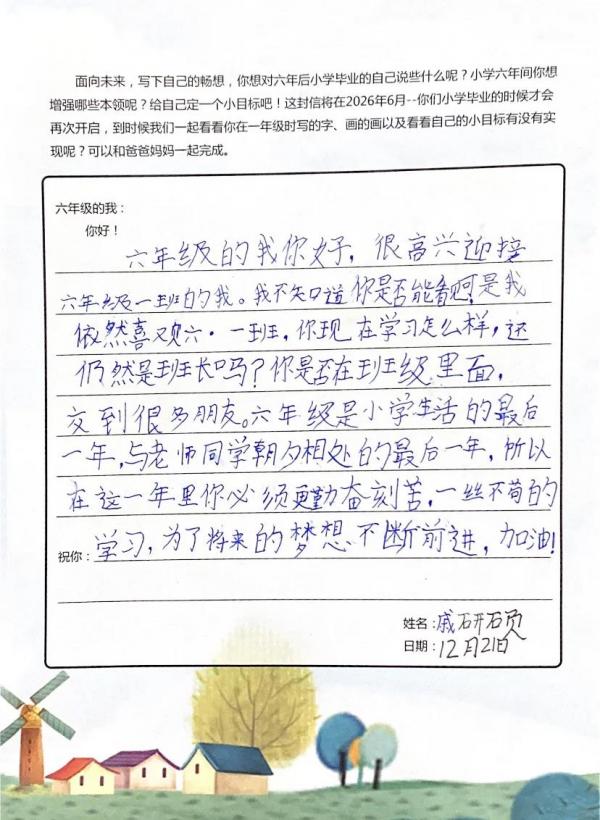 面向未来，写下自己的畅想，你想对六年后小学毕业的自己说些什么呢？小学六年间你想
增强哪些本领呢？给自己定一个小目标吧！这封信将在2026年6月--你们小学毕业的时候才会
再次开启，到时候我们一起看看你在一年级时写的字、画的画以及看看自己的小目标有没有实
现呢？可以和爸爸妈妈一起完成。
六年级的我：
你好！
六年级的我你好，很高兴迎接
六年级一班的我。我不知道你是否能看 是我
依然喜欢六·一班，你现在学习怎么样，还
仍然是班长吗？你是否在班级里面，
交到很多朋友。六年级是小学生活的最后
一年，与老师同学朝夕相处的最后一年，所以
在这一年里你必须更勤奋刻苦，一丝不苟的
祝你：学习，为了将来的梦想不断前进，加油！
姓名：戚研硕
日期：12月21日